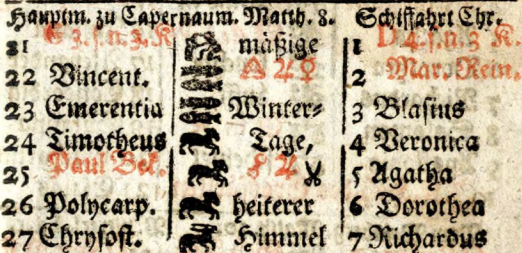 Hauptm. zu Capernaum. Matth. 8. Schiffahrt Chr.
21 E 3. s. n. 3. K mäßige 1 D 4. s. n. 3 K.
22 Vincent. △ ♃ ♀ 2 Mar. Rein.
23 Emerentia Winter= 3 Blasius
24 Timotheus Tage, 4 Veronica
25 Paul Bek. ♃ 5 Agatha
26 Polycarp. heiterer 6 Dorothea
27 Chrysost. Himmel 7 Richardus